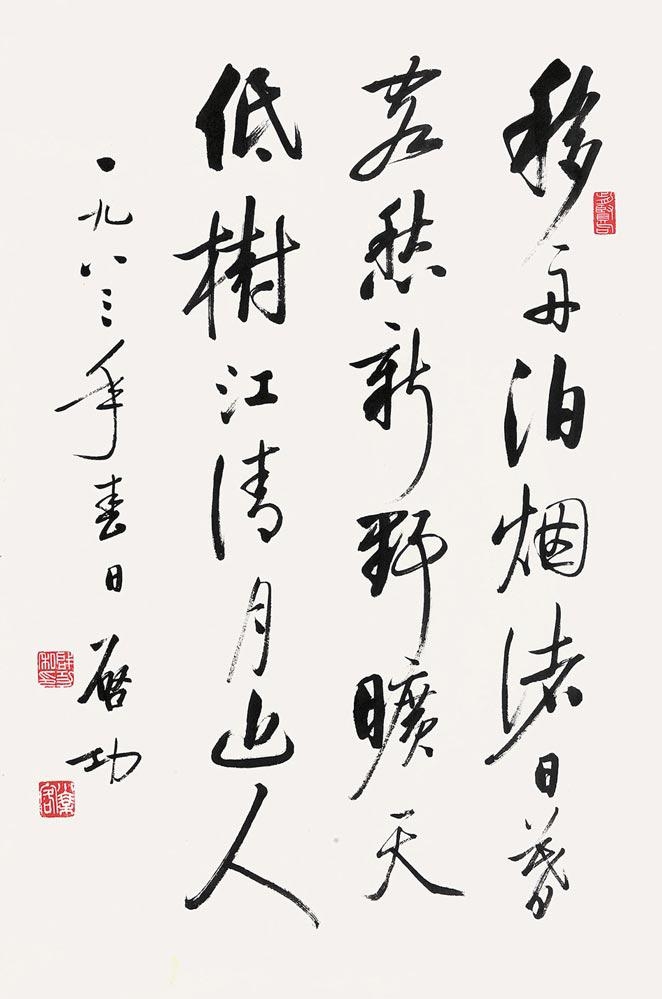 移舟泊烟渚日暮
客愁新野曠天
低樹江清月近人
一九八三年春日啓功